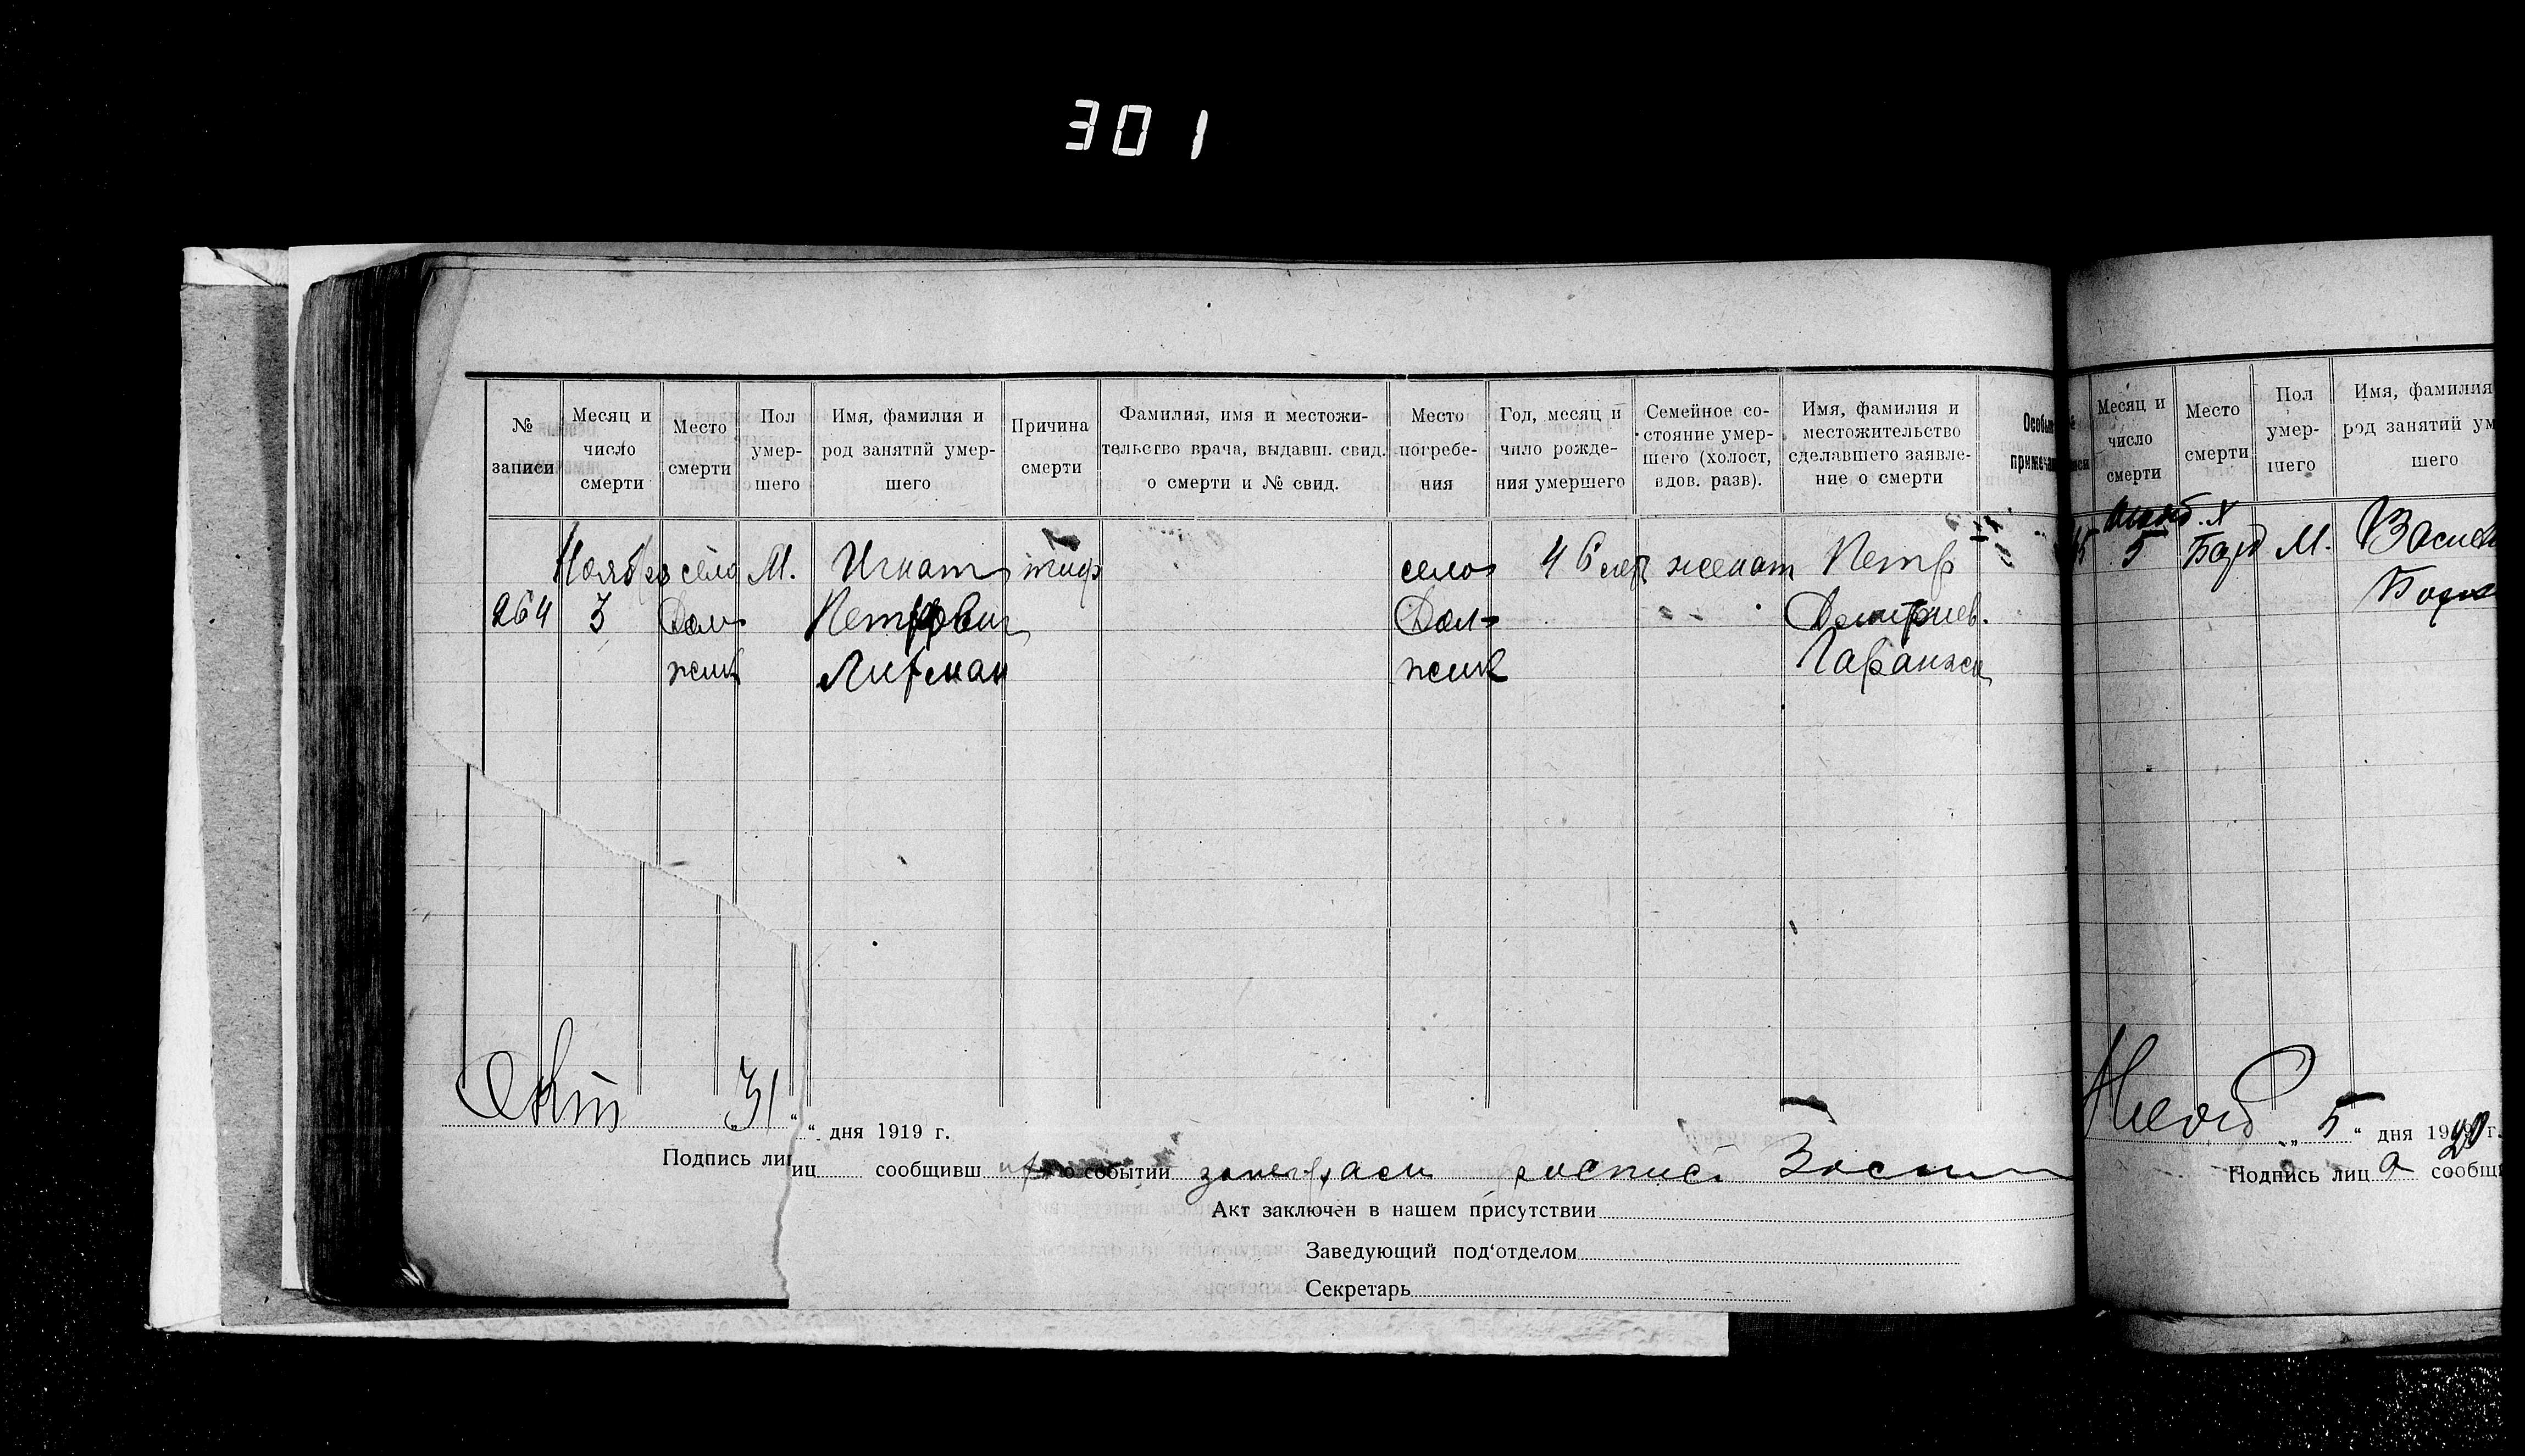 301
№ записи
Месяц и число смерти
Место смерти
Пол умершего
Имя, фамилия и род занятий умершего
Причина смерти
Фамилия, имя и местожительство врача, выдавш. свид. о смерти и № свид.
Место погребения
Год, месяц и чило рождения умершего
Семейное состояние умершего (холост, вдов. разв).
Имя, фамилия и местожительство сделавшего заявление о смерти
Особые
примеча
264
Ноября
3
село
Дол
жик
М.
Игнат
Петрович
тиф
село
Дол-
жик
46 лет
женат
Петр
Дмитриев.
Гаранжа
Окт 31 “ дня 1919 г.
Подпись лиц сообщивш о событии
Акт заключен в нашем присутствии
Заведующий под‘отделом
Секретарь
Месяц и число смерти
Место смерти
Пол умершего
Имя, фамилия
род занятий ум
шего
5
М.
Нояб „ 5 “ дня 1920 г.
Подпись лица сообщ